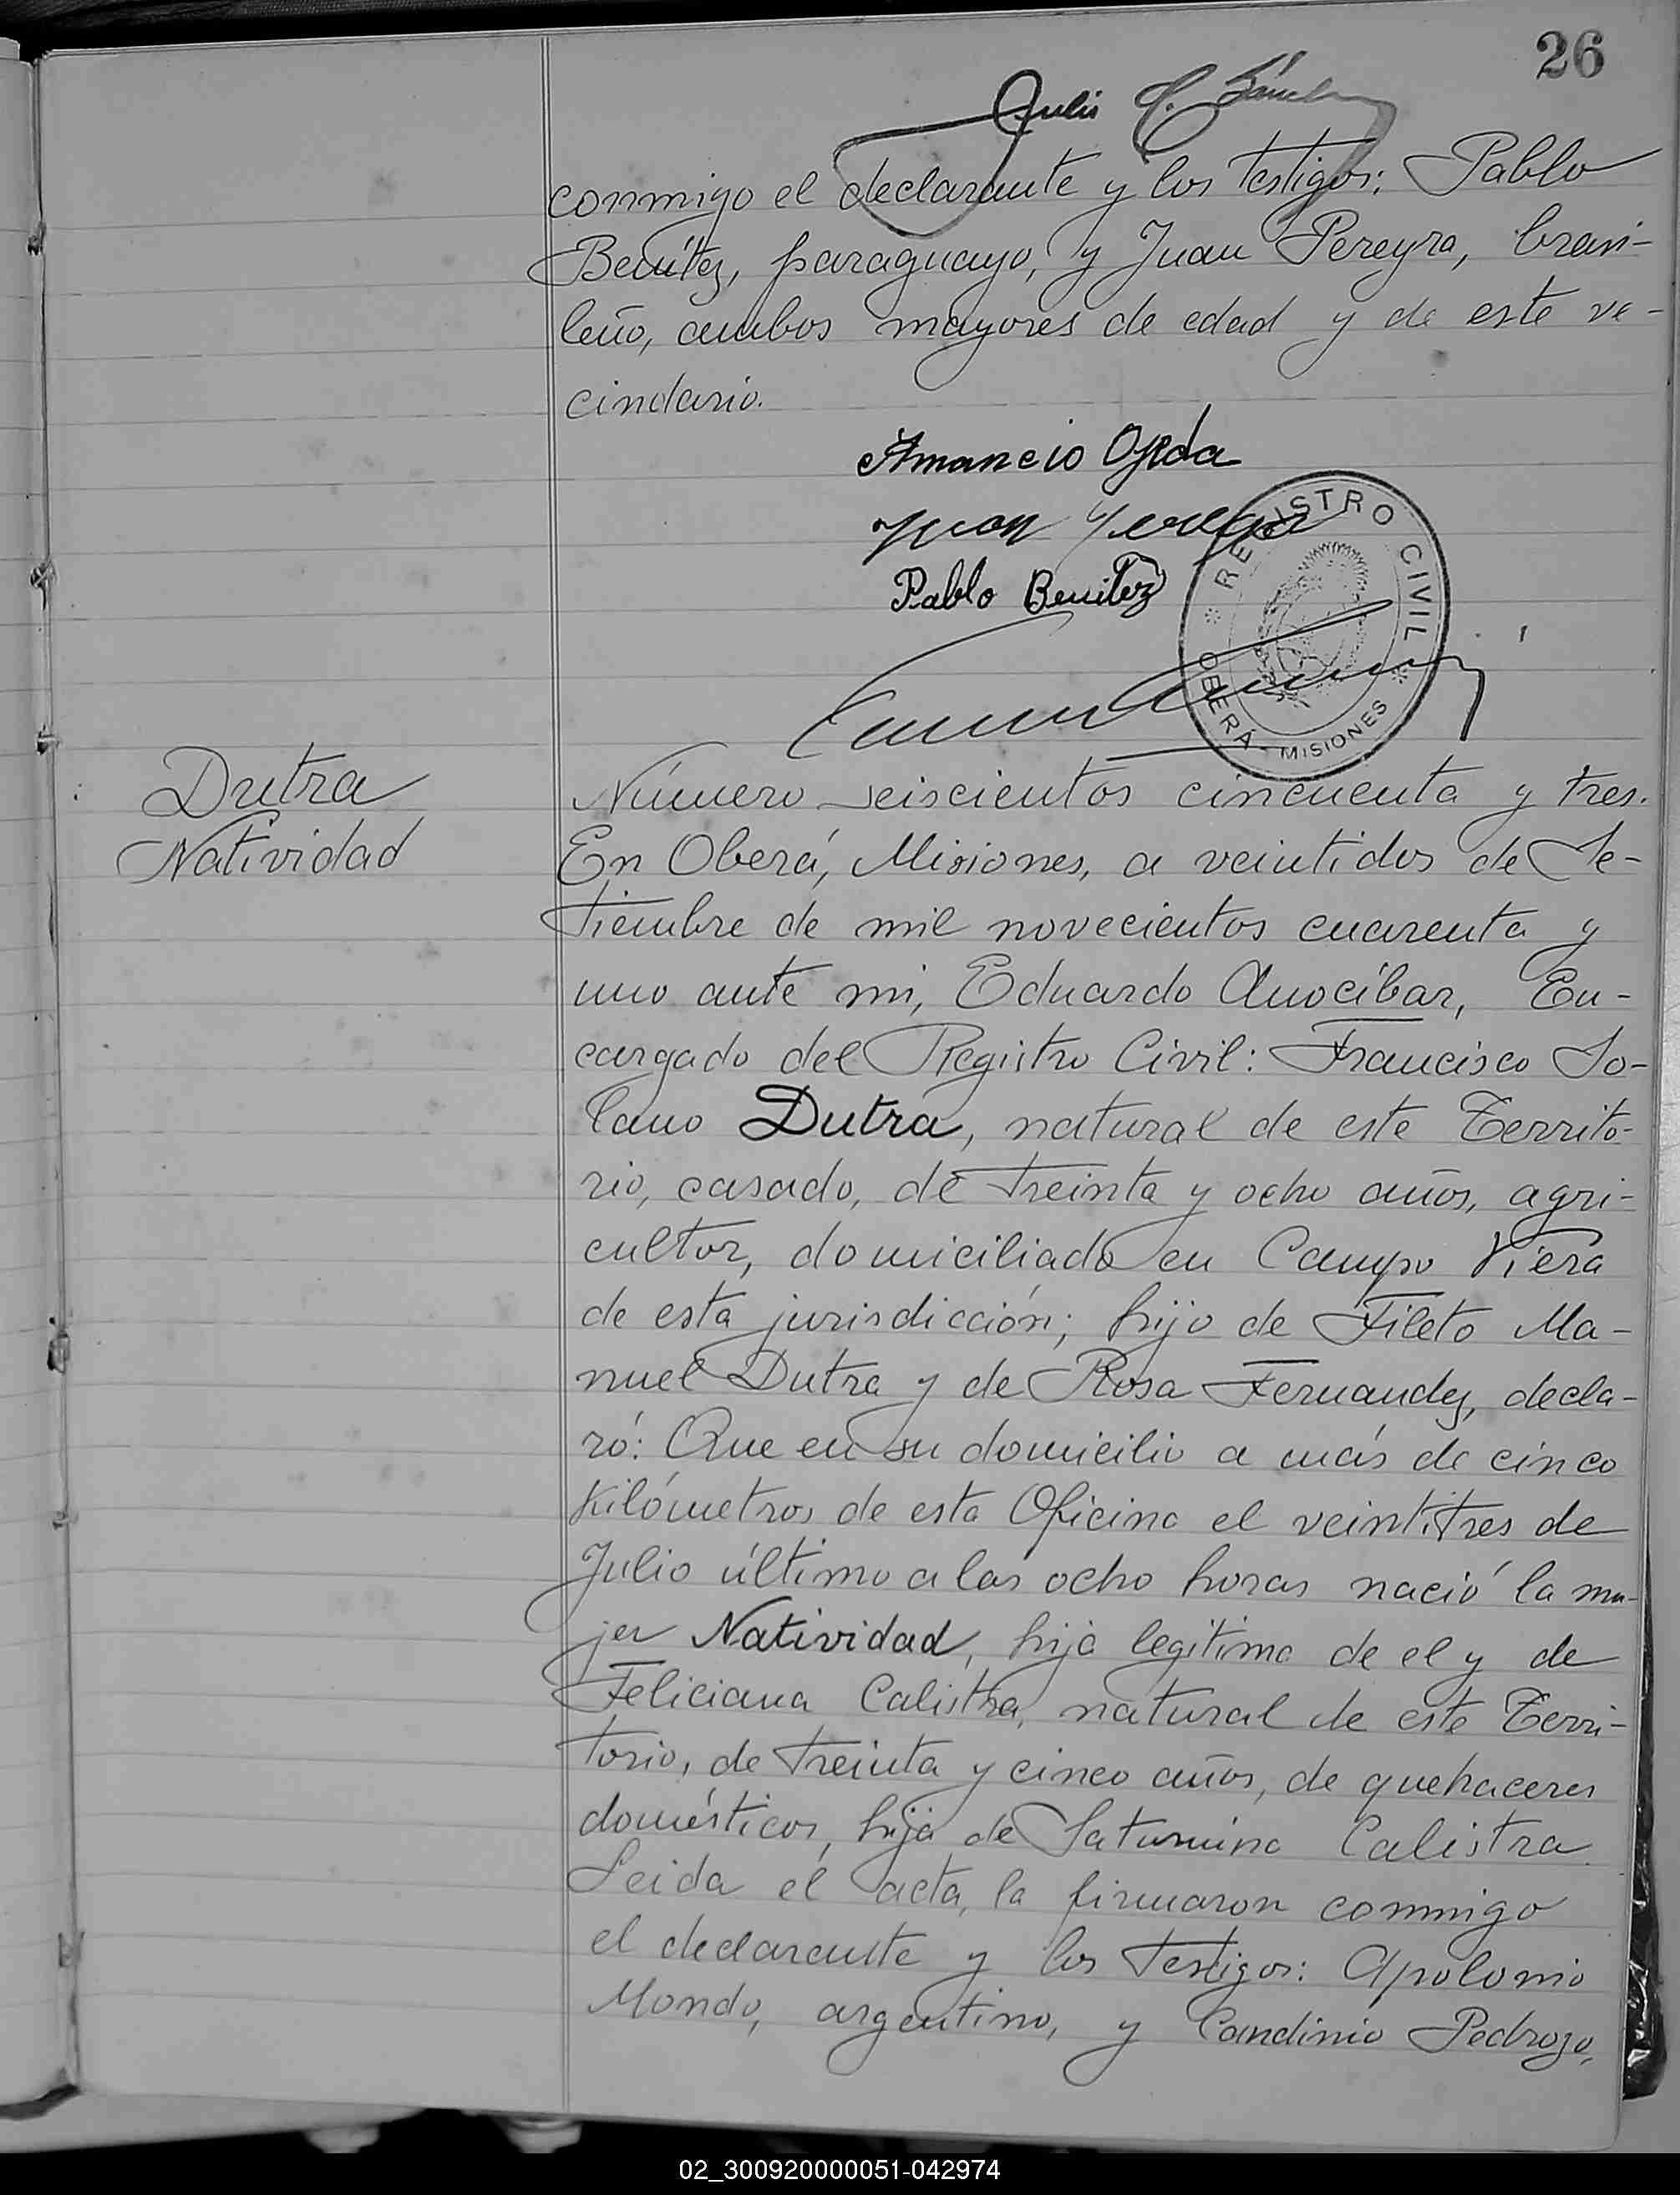 26
Julio
conmigo el declarante y los testigos: Pablo
Benítez, paraguayo, y Juan Pereyra, brasi-
leño, ambos mayores de edad y de este ve-
cindario.
Amancio Ojeda
Juan Pereyra
Pablo Benitez
REGISTRO CIVIL
OBERÁ - MISIONES
Dutra
Natividad
Número seiscientos cincuenta y tres.
En Oberá, Misiones, a veintidos de Se-
tiembre de mil novecientos cuarenta y
uno ante mi, Eduardo Anocíbar, En-
cargado del Registro Civil: Francisco So-
lano Dutra, natural de este Territo-
rio, casado, de treinta y ocho años, agri-
cultor, domiciliado en Campo Viera
de esta jurisdicción; hijo de Fileto Ma-
nuel Dutra y de Rosa Fernandez, decla-
ró: Que en su domicilio a más de cinco
kilómetros de esta Oficina el veintitres de
Julio último a las ocho horas nació la mu-
jer Natividad, hija legitima de el y de
Feliciana Calistra, natural de este Terri-
torio, de treinta y cinco años, de quehaceres
domésticos, hija de Saturnina Calistra.
Leida el acta, la firmaron conmigo
el declarante y los testigos: Apolonio
Mondo, argentino, y Candinio Pedrozo,
02_300920000051-042974